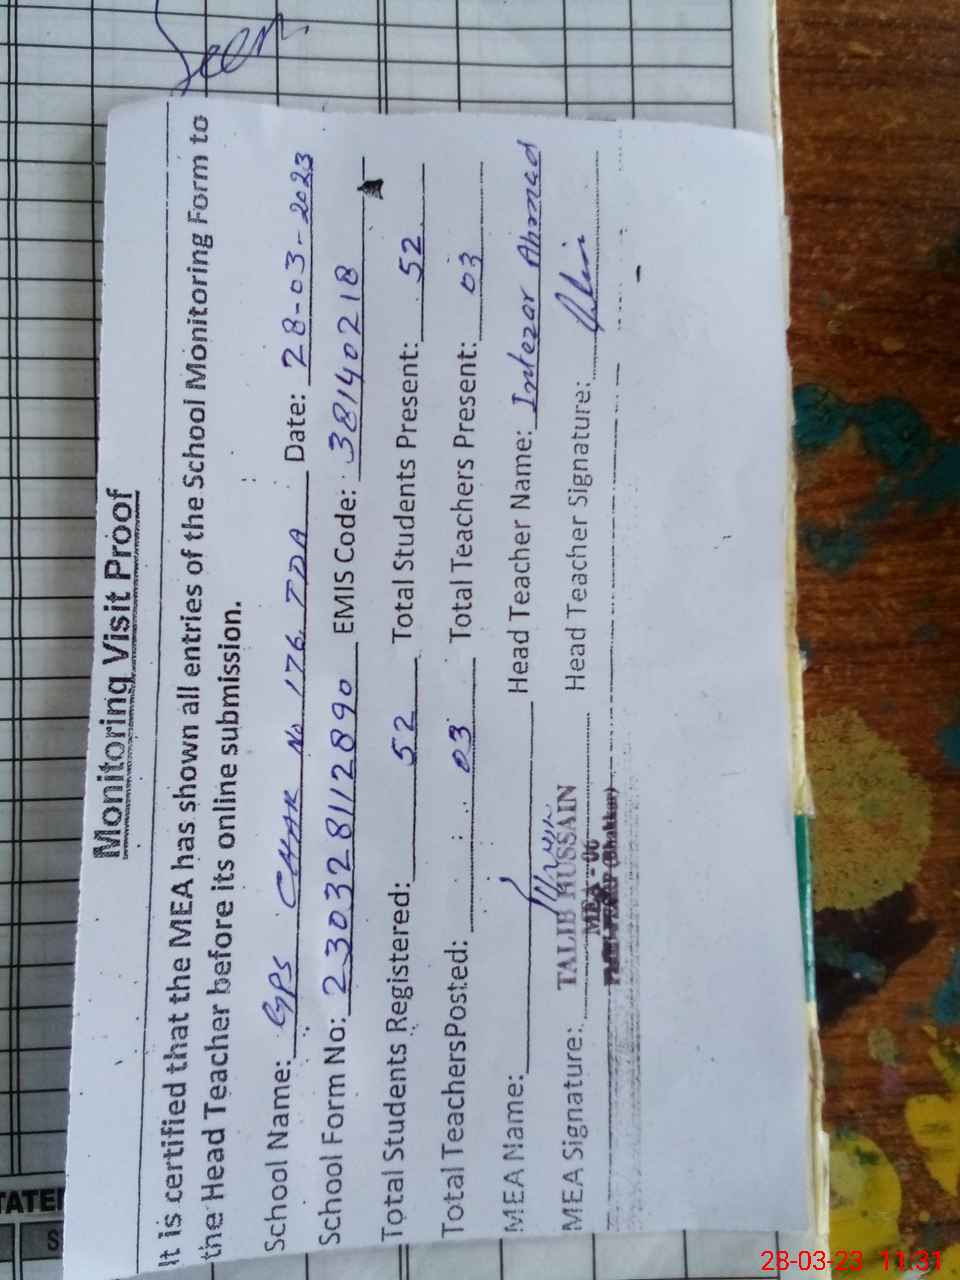 Seen
Monitoring Visit Proof
It is certified that the MEA has shown all entries of the School Monitoring Form to
the Head Teacher before its online submission.
School Name: GPS CHAK No 176, TDA Date: 28-03-2023
School Form No: 230328112890 EMIS Code: 38140218
Total Students Registered: 52 Total Students Present: 52
Total TeachersPosted: 03 Total Teachers Present: 03
MEA Name: Head Teacher Name: Intezar Ahmad
MEA Signature: Head Teacher Signature:
TALIB HUSSAIN
MEA - 06
(Bhakkar)
28-03-23 11:31